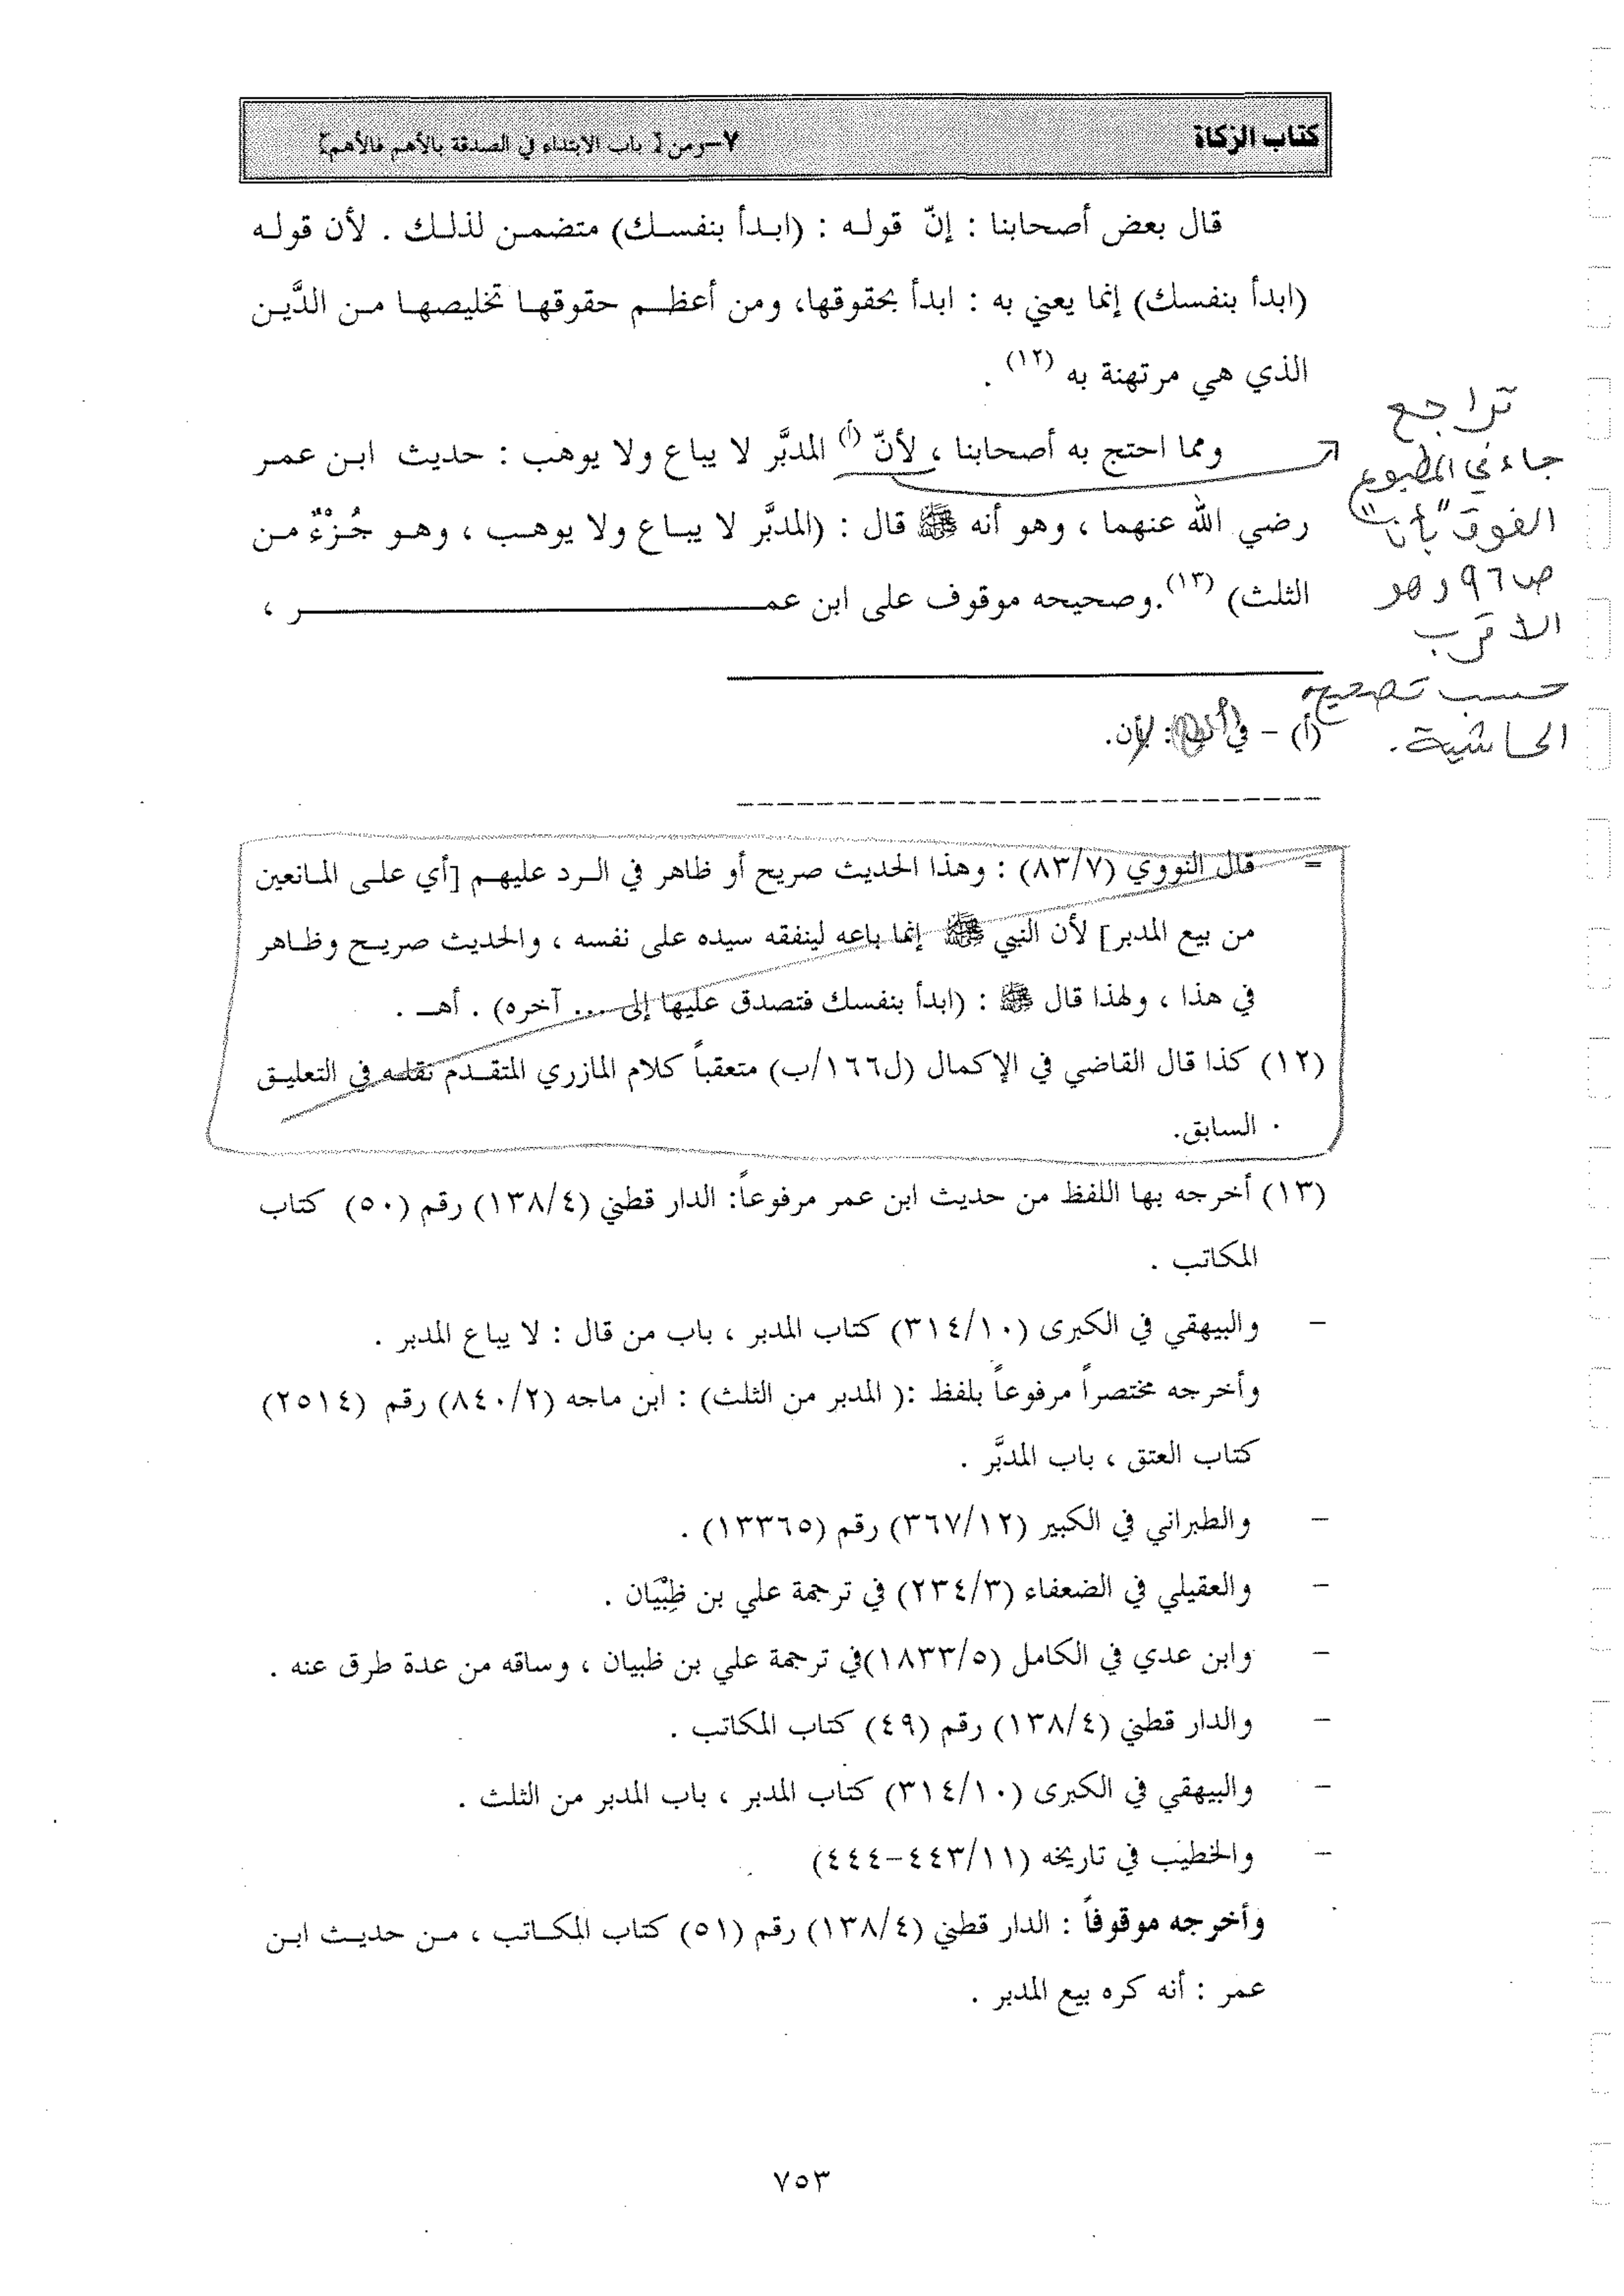 كتاب الزكاة
٧-ومن [ باب الابتداء في الصدقة بالأهم فالأهم]
قال بعض أصحابنا : إنّ قوله : (ابدأ بنفسك) متضمن لذلك . لأن قوله
(ابدأ بنفسك) إنما يعني به : ابدأ بحقوقها، ومن أعظم حقوقها تخليصها من الدَّين
الذي هي مرتهنة به (١٢) .
ومما احتج به أصحابنا ، لأنّ (أ) المدبَّر لا يباع ولا يوهب : حديث ابن عمر
رضي الله عنهما ، وهو أنه ﷺ قال : (المدبَّر لا يباع ولا يوهب ، وهو جُزْءٌ من
الثلث) (١٣).وصحيحه موقوف على ابن عمر ،
تراجع
جاء في المطبوع
الفوق "بأن"
ص٩٦ وهو
الأقرب
حسب تصحيح
الحاشية .
(أ) - في : بأن.
= قال النووي (٨٣/٧) : وهذا الحديث صريح أو ظاهر في الرد عليهم [أي على المانعين
من بيع المدبر] لأن النبي ﷺ إنما باعه لينفقه سيده على نفسه ، والحديث صريح وظاهر
في هذا ، ولهذا قال ﷺ : (ابدأ بنفسك فتصدق عليها إلى ... آخره) . أهـ .
(١٢) كذا قال القاضي في الإكمال (ل١٦٦/ب) متعقباً كلام المازري المتقدم نقله في التعليق
السابق.
(١٣) أخرجه بها اللفظ من حديث ابن عمر مرفوعاً: الدار قطني (١٣٨/٤) رقم (٥٠) كتاب
المكاتب .
- والبيهقي في الكبرى (٣١٤/١٠) كتاب المدبر ، باب من قال : لا يباع المدبر .
وأخرجه مختصراً مرفوعاً بلفظ :( المدبر من الثلث) : ابن ماجه (٨٤٠/٢) رقم (٢٥١٤)
كتاب العتق ، باب المدبَّر .
- والطبراني في الكبير (٣٦٧/١٢) رقم (١٣٣٦٥) .
- والعقيلي في الضعفاء (٢٣٤/٣) في ترجمة علي بن ظِبْيَان .
- وابن عدي في الكامل (١٨٣٣/٥)في ترجمة علي بن ظبيان ، وساقه من عدة طرق عنه .
- والدار قطني (١٣٨/٤) رقم (٤٩) كتاب المكاتب .
- والبيهقي في الكبرى (٣١٤/١٠) كتاب المدبر ، باب المدبر من الثلث .
- والخطيب في تاريخه (٤٤٣/١١-٤٤٤)
وأخرجه موقوفاً : الدار قطني (١٣٨/٤) رقم (٥١) كتاب المكاتب ، من حديث ابن
عمر : أنه كره بيع المدبر .
٧٥٣